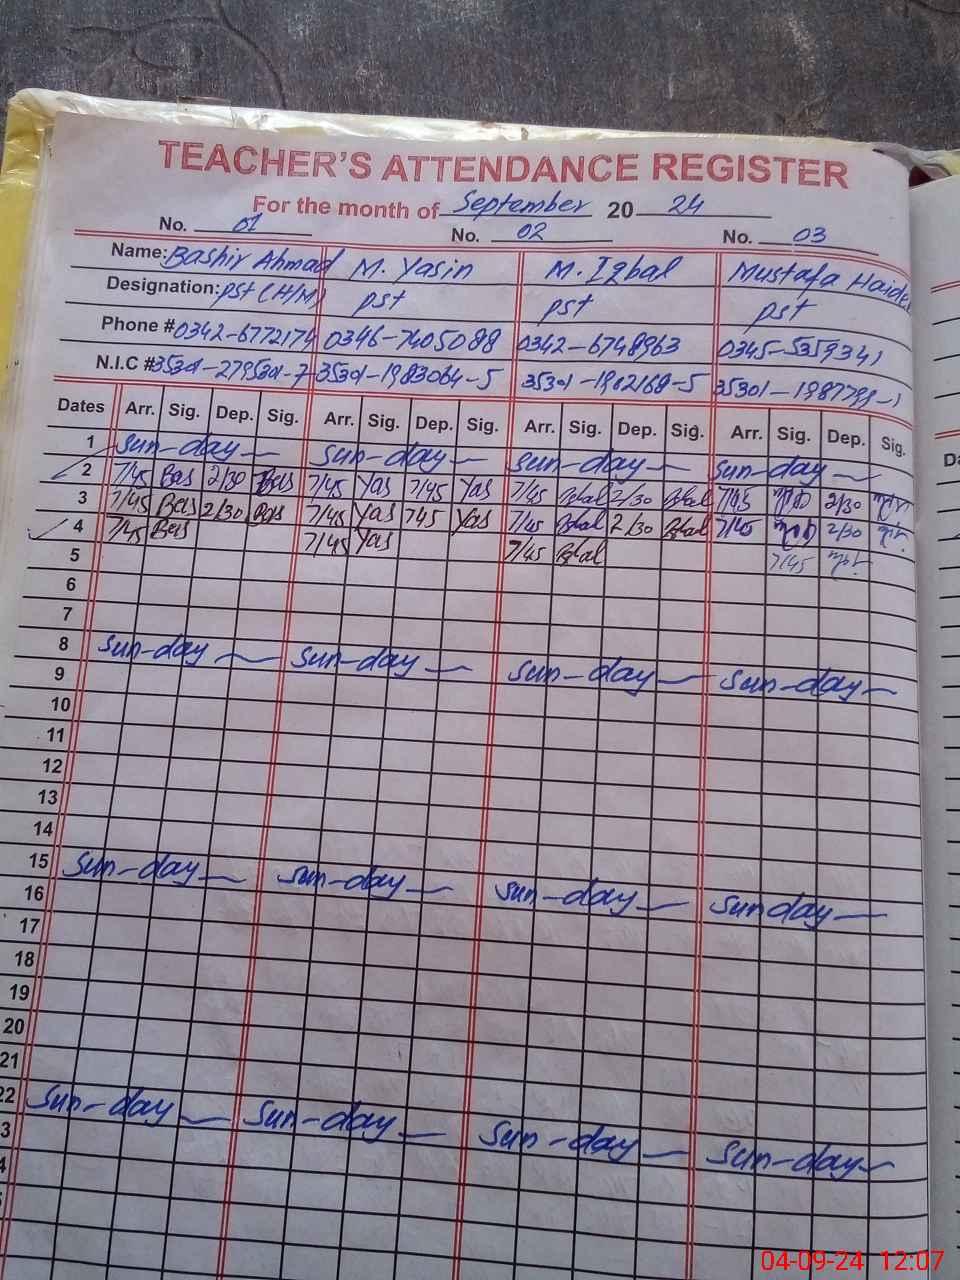 TEACHER'S ATTENDANCE REGISTER
For the month of September 2024
No. 01 No. 02 No. 03
Name: Bashir Ahmad M. Yasin M. Iqbal Mustafa Haider
Designation: pst (H/M) pst pst pst
Phone # 0342-6772174 0346-7405088 0342-6748963 0345-5359341
N.I.C # 35301-1983064-5
Dates Arr. Sig. Dep. Sig. Arr. Sig. Dep. Sig. Arr. Sig. Dep. Sig. Arr. Sig. Dep. Sig.
1 sun-day sun-day sun-day sun-day
2 7/45 Bas 2/30 Bas 7/45 Yas 7/45 Yas 7/45 Iqbal 2/30 Iqbal 7/45 2/30
3 7/45 Bas 2/30 Bas 7/45 Yas 745 Yas 7/45 Iqbal 2/30 Iqbal 7/45 2/30
4 7/45 Bas 7/45 Yas 7/45 Iqbal 7/45
5
6
7
8 sun-day sun-day sun-day sun-day
9
10
11
12
13
14
15 sun-day sun-day sun-day sunday
16
17
18
19
20
21
22 sun-day sun-day sun-day sun-day
3
4
04-09-24 12:07